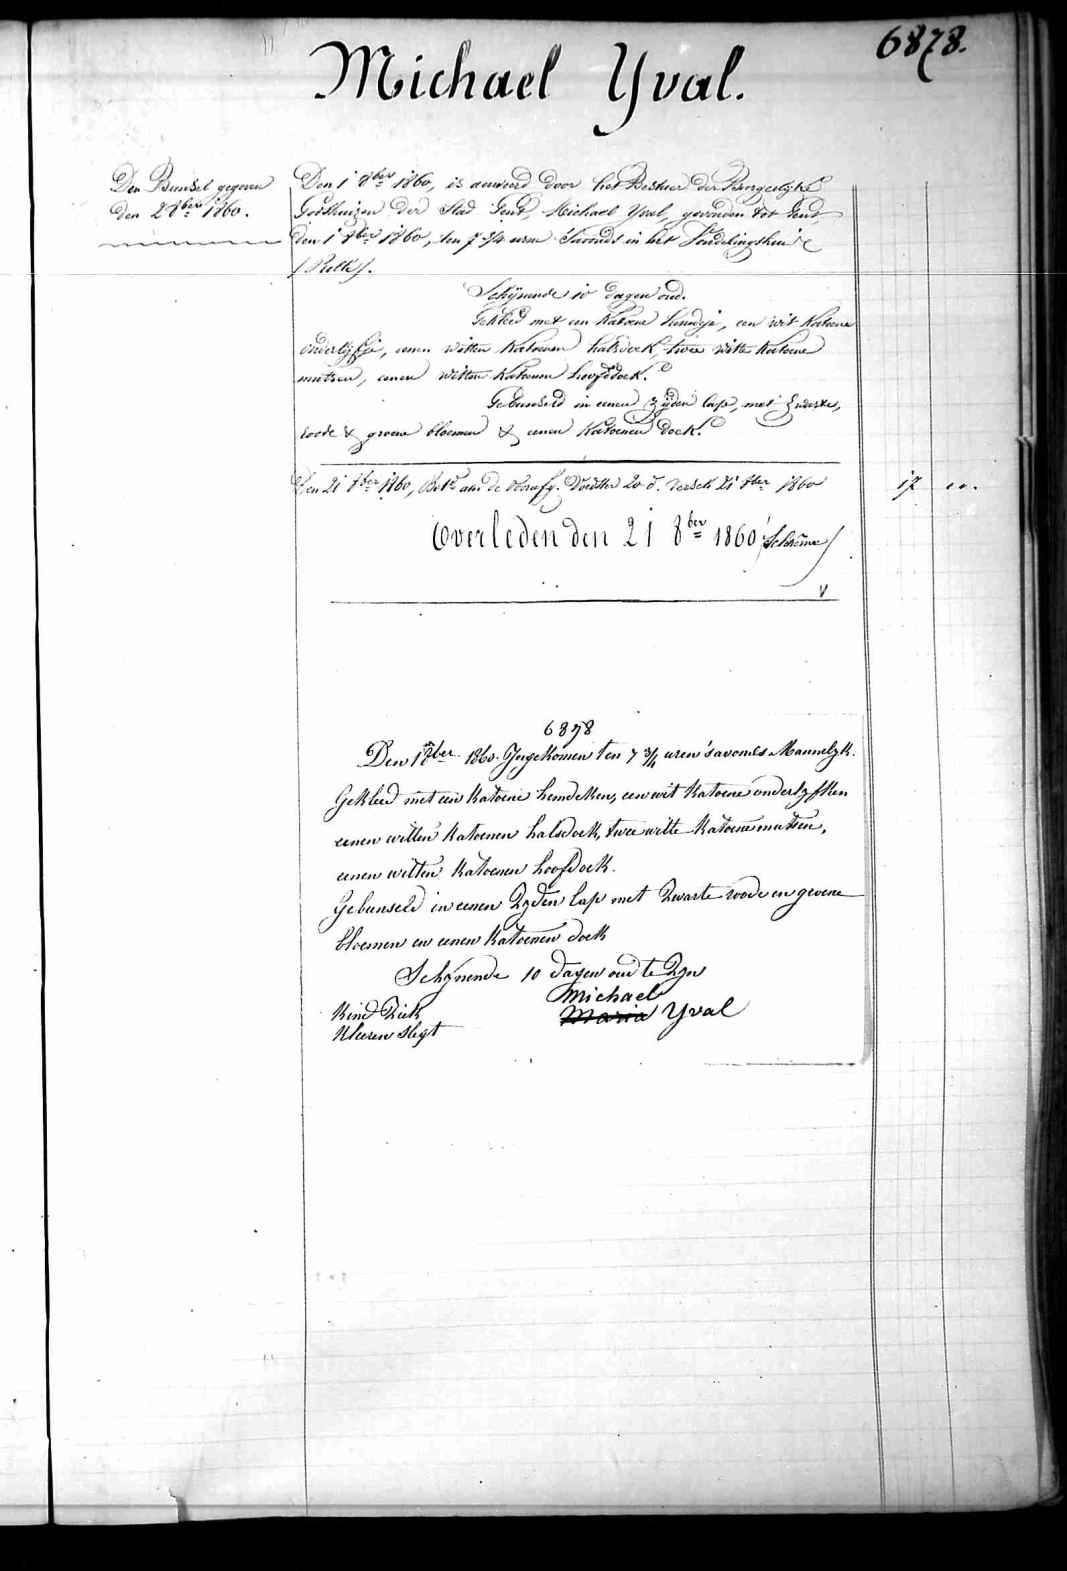 6878.
Michael Yval.
Den Bunsel gegeven
den 2 8ber 1860.
Den 1 8ber 1860, is aenveerd door het Bestuer der Burgerlyke
Godshuizen der Stad Gent, Michael Yval, gevonden tot Gend,
den 1 8ber 1860, ten 7 3/4 uren 'savonds in het Vondelingshuis
Schynende 10 dagen oud.
Gekleed met een Katoene hemdeje, een wit Katoene
onderlyfje, eenen witten Katoenen halsdoek, twee witte Katoene
mutsen, eenen witten Katoenen hoofddoek.
Gebunseld in eenen zyden lap, met zwarte,
roode & groene bloemen & eenen Katoenen doek.
Den 21 8ber 1860, aen de Voedster 20 d. 21 8ber 1860 17
Overleden den 21 8ber 1860
6878
Den 1 8ber 1860. Ingekomen ten 7 3/4 uren 'savonds Mannelyk.
Gekleed met een Katoene hemdeken, een wit Katoene onderlyfken
eenen witten Katoenen halsdoek, twee witte Katoene mutsen,
eenen witten Katoenen hoofdoek.
Gebunseld in eenen Zyden lap met Zwarte roode en groene
bloemen en eenen Katoenen doek
Schynende 10 dagen oud te Zyn
Michael
Kind Ziek Maria Yval
Kleeren slegt